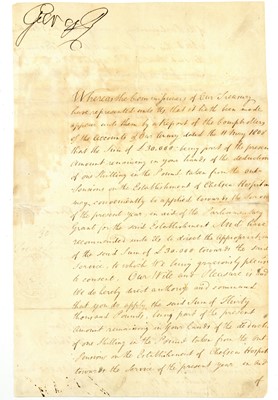 George R
Whereas the Commissioners of Our Treasury
have represented unto Us that it hath been made
appear unto them by a Report of the Comptrollers
of the Accounts of Our Army dated the 11 May
that the Sum of £30,000 being part of the present
Amount remaining in your hands of the deduction
of one Shilling in the Pound taken from the out
Pensions on the Establishment of Chelsea Hospital
may conveniently be applied towards the Service
of the present year, in aid of the Parliamentary
Grant for the said Establishment And have
recommended unto Us to direct the Appropriation
of the said Sum of £30,000 towards the said
Service, to which We being graciously pleased
to consent. Our Will and Pleasure is and
We do hereby direct authorize and command
that you do apply the said Sum of Thirty
thousand Pounds, being part of the present
Amount remaining in Your hands of the deduction
of one Shilling in the Pound taken from the Out
Pensions on the Establishment of Chelsea Hospital
towards the Service of the present year in aid
of